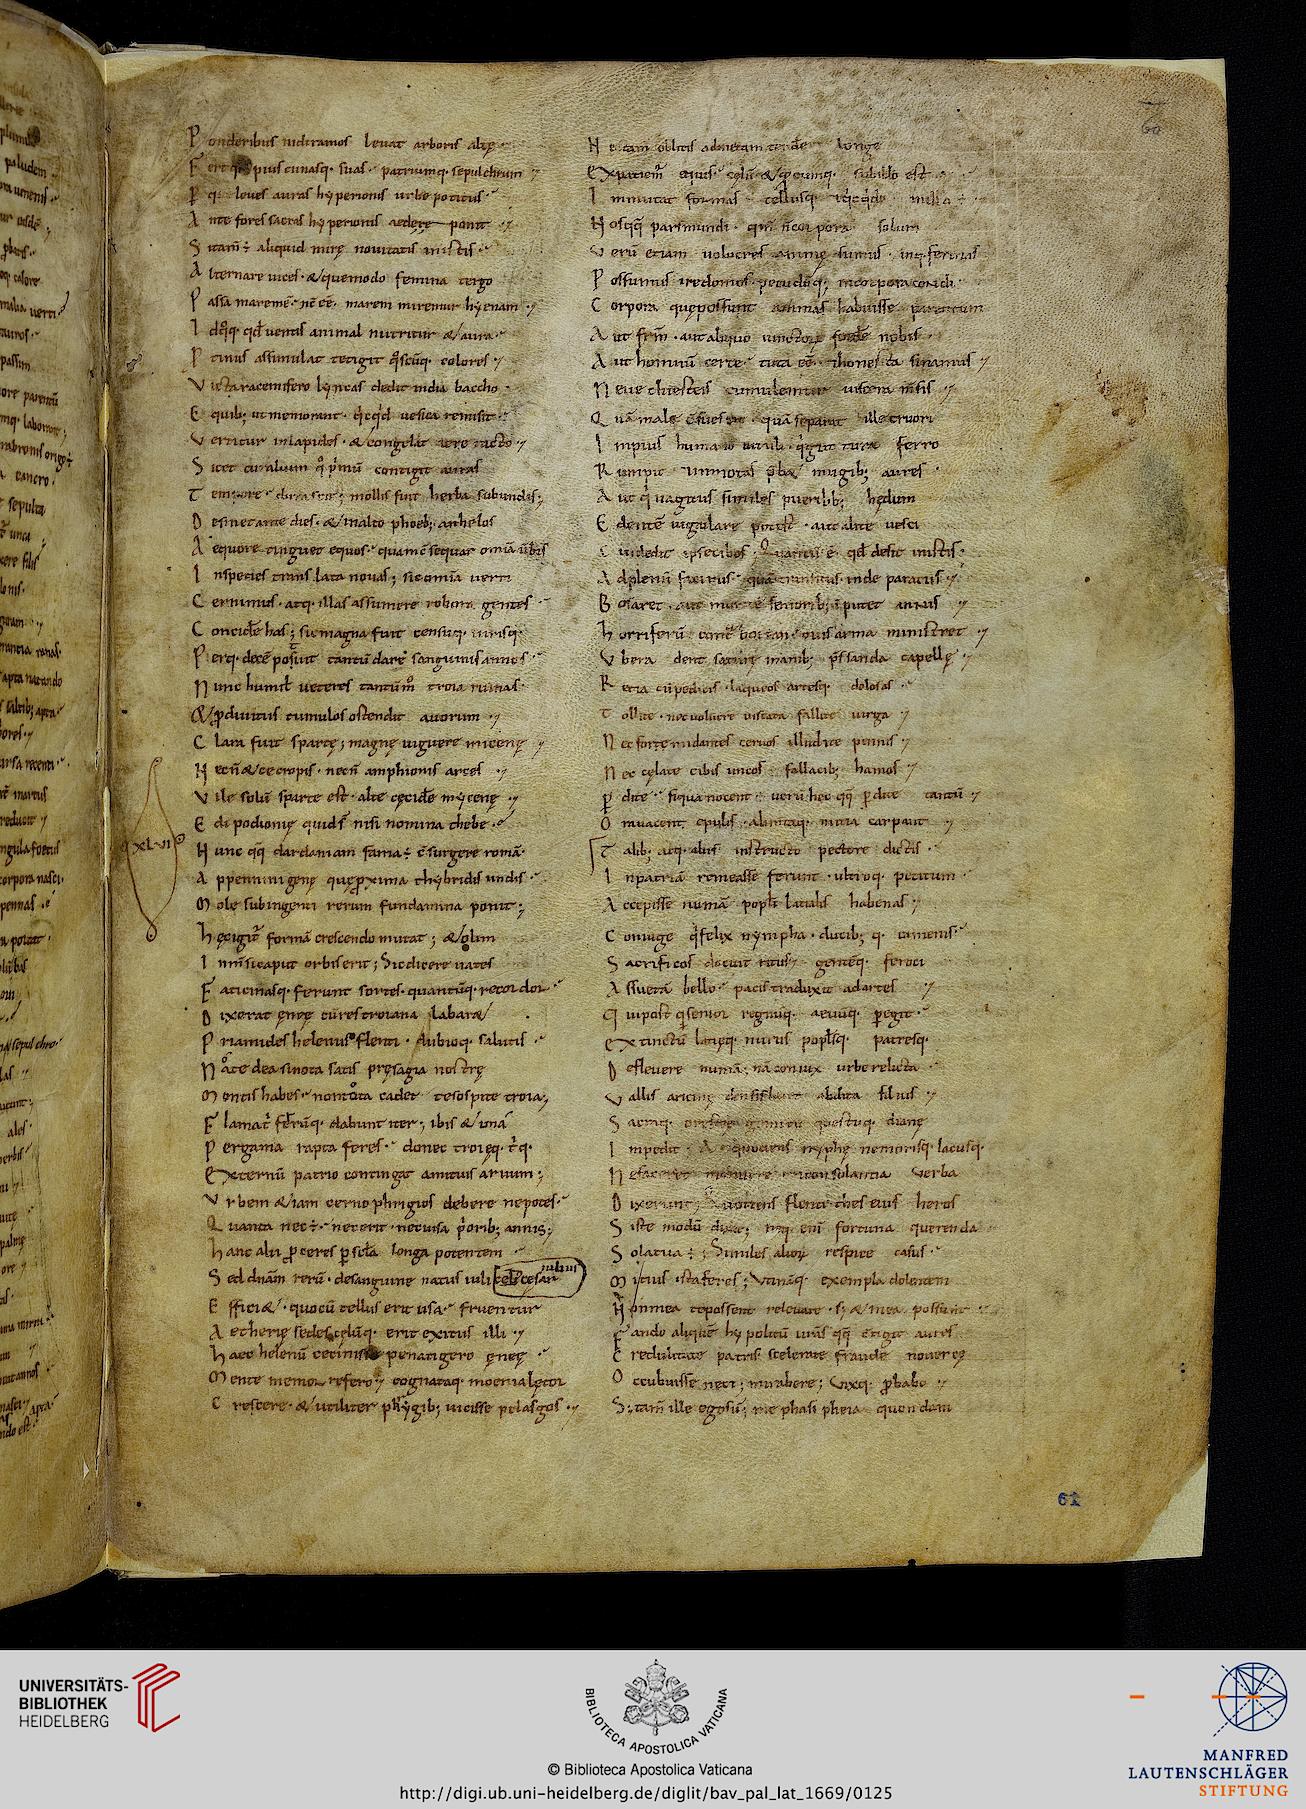 Ponderibus nidi ramos levat arboris altę
Fertq; pius cunasq. suas patriumq. sepulchrum
Pq; leves auras hyperionis urbe potitus
Ante fores sacras hyperionis aede ponit
Si tam̄ ÷ aliquid mirę novitatis in istis
Alternare vices & quemodo femina tergo
Passa marem ē nc̄ eē marem miremur hyenam
Id qq. qd̄ ventis animal nutritur & aura
Ptinus assimulat tetigit qscūq. colores
Victa racemifero lyncas dedit india baccho
E quib; ut memorant qcqd vesica remisit
Vertitur in lapides & congelat aere tacto
Sic et curalium q̊ pimū contigit auras
Tempore durascit; mollis fuit herba sub undis;
Desinet ante dies & in alto phoeb; anhelos
Aequore tinguet equos quam c̄sequar omīa ubis
In species translata novas; sic omīa verti
Cernimus atq. illas assumere robora gentes
Concidē has; sic magna fuit censuq. virisq.
Perq. decē potuit tantū dare sanguinis annos
Nunc humil veteres tantūm̊ troia ruinas
& p divitiis tumulos ostendit avorum
Clara fuit spartę; magnę viguere micenę
Nec n̄ & cecropis nec n̄ amphionis arces
Vile solū sparte est alte cęcidē mycenę
Edipodionię quid s̄ nisi nomina thebe
Nunc qq dardaniam fama ÷ c̄surgere romā
Appennini genę quę pxima thybridis undis
Mole sub ingenti rerum fundamina ponit;
Hęc igit̄ formā crescendo mutat; & olim
Inmsi caput orbis erit; Sic dicere vates
Faticinasq. ferunt sortes quantūq. recordor
Dixerat ęneę cū res troiana labar&
Priamides helenus flenti dubioq. salutis
Nate dea si nota satis pręsagia nostrę
Mentis habes non tota cadet te sospite troia;
Flama t' ferrūq. dabunt iter; ibis & unā
Pergama rapta feres donec troięq. t'q.
Externū patrio contingat amicius arvum;
Vrbem & iam cerno phrigios debere nepotes
Quanta nec ÷ nec erit nec visa p'orib; annis;
Hanc alii pceres p sc̄la longa potentem
Sed dnām rerū de sanguine natus iuli
Effici& quo cū tellus erit usa fruentur
Aetherię sedes cęlūq. erit exitus illi
Haec helenū cecinisse penatigero ęneę
Mente memor refero cognataq. moenia lętor
Crescere & utiliter phrygib; vicisse pelasgos
Ne tam oblitis ad metam tendē longe
Expatiem̄ equis cęlū & qcumq. sub illo est
Inmutat formas tellusq. qcqd in illa ÷
Nos qq pars mundi qm̄ n̄ corpora solum
Verū etiam volucres animę sumus inq. ferinas
Possumus ire domos pecudūq; in corpora condi
Corpora quę possunt animas habuisse parentum
Aut frm̄ aut aliquo vinctor fodē nobis
Aut hominū certe tuta eē & honesta sinamus
Neve thiestis cumulemur viscera msis
Quā male c̄suescit quā se parat ille cruori
Impius humano vituli q'gut tura ferro
Rumpit Inmotas pb& mugib; aures
Aut q vagitus similes puerilib; hędum
Edentē iugulare potest aut alite vesci
Cui dedit ipse cibos Quantū ē qd̄ desit in istis
Ad plenū facinus quā transitus inde paratus
Bos aret aut mortē seniorib; i putet annis
Horriferū cont boream ovis arma ministret
Vbera dent saturę manib; pssanda capellę
Retia cū pedicis laqueos artesq. dolosas
Tollite nec volucre viscata fallite virga
Nec formidantes cervos illudite pinnis
Nec cęlate cibis uncos fallacib; hamos
Pdite siqua nocent verū hec qq pdite tantū
Ora vacent epulis alimtaq. mitia carpant
Talib; atq. aliis instructo pectore dictis
In patriā remeasse ferunt ultroq. petitum
Accepisse numā popli latialis habenas
Coniuge q' felix nympha ducib; q. camenis
Sacrificos docuit ritus gentēq. feroci
Assuetā bello pacis traduxit ad artes
Qui postq senior regnūq. aevūq. pegit
Extinctū latięq. nurus poplsq. patresq.
Deflevere numā; nā coniux urbe relicta
Vallis aricinę densis abdita silvis
Sacraq. gemitu questuq. dianę
Impedit A quociens nymphę nemorisq. lacusq.
Ne facer& consolantia verba
Dixerunt; Quotiens flenti theseius heros
Siste modū dixit; nq. enī fortuna querenda
Sola tua ÷; Similes alior respice casus
Mitius ista feres; Vtināq. exempla dolentem
Non mea te possent relevare s; & mea possunt
Fando aliquē hypolitū ur̄is qq c̄tigit aures
Credulitate patris scelerate fraude novercę
Occubuisse neci; mirabere; vixq. pbabo
S; tam̄ ille ego sū; me phasipheia quondam
XLVII
60
61
UNIVERSITÄTS-
BIBLIOTHEK
HEIDELBERG
BIBLIOTECA APOSTOLICA VATICANA
© Biblioteca Apostolica Vaticana
http://digi.ub.uni-heidelberg.de/diglit/bav_pal_lat_1669/0125
MANFRED
LAUTENSCHLÄGER
STIFTUNG